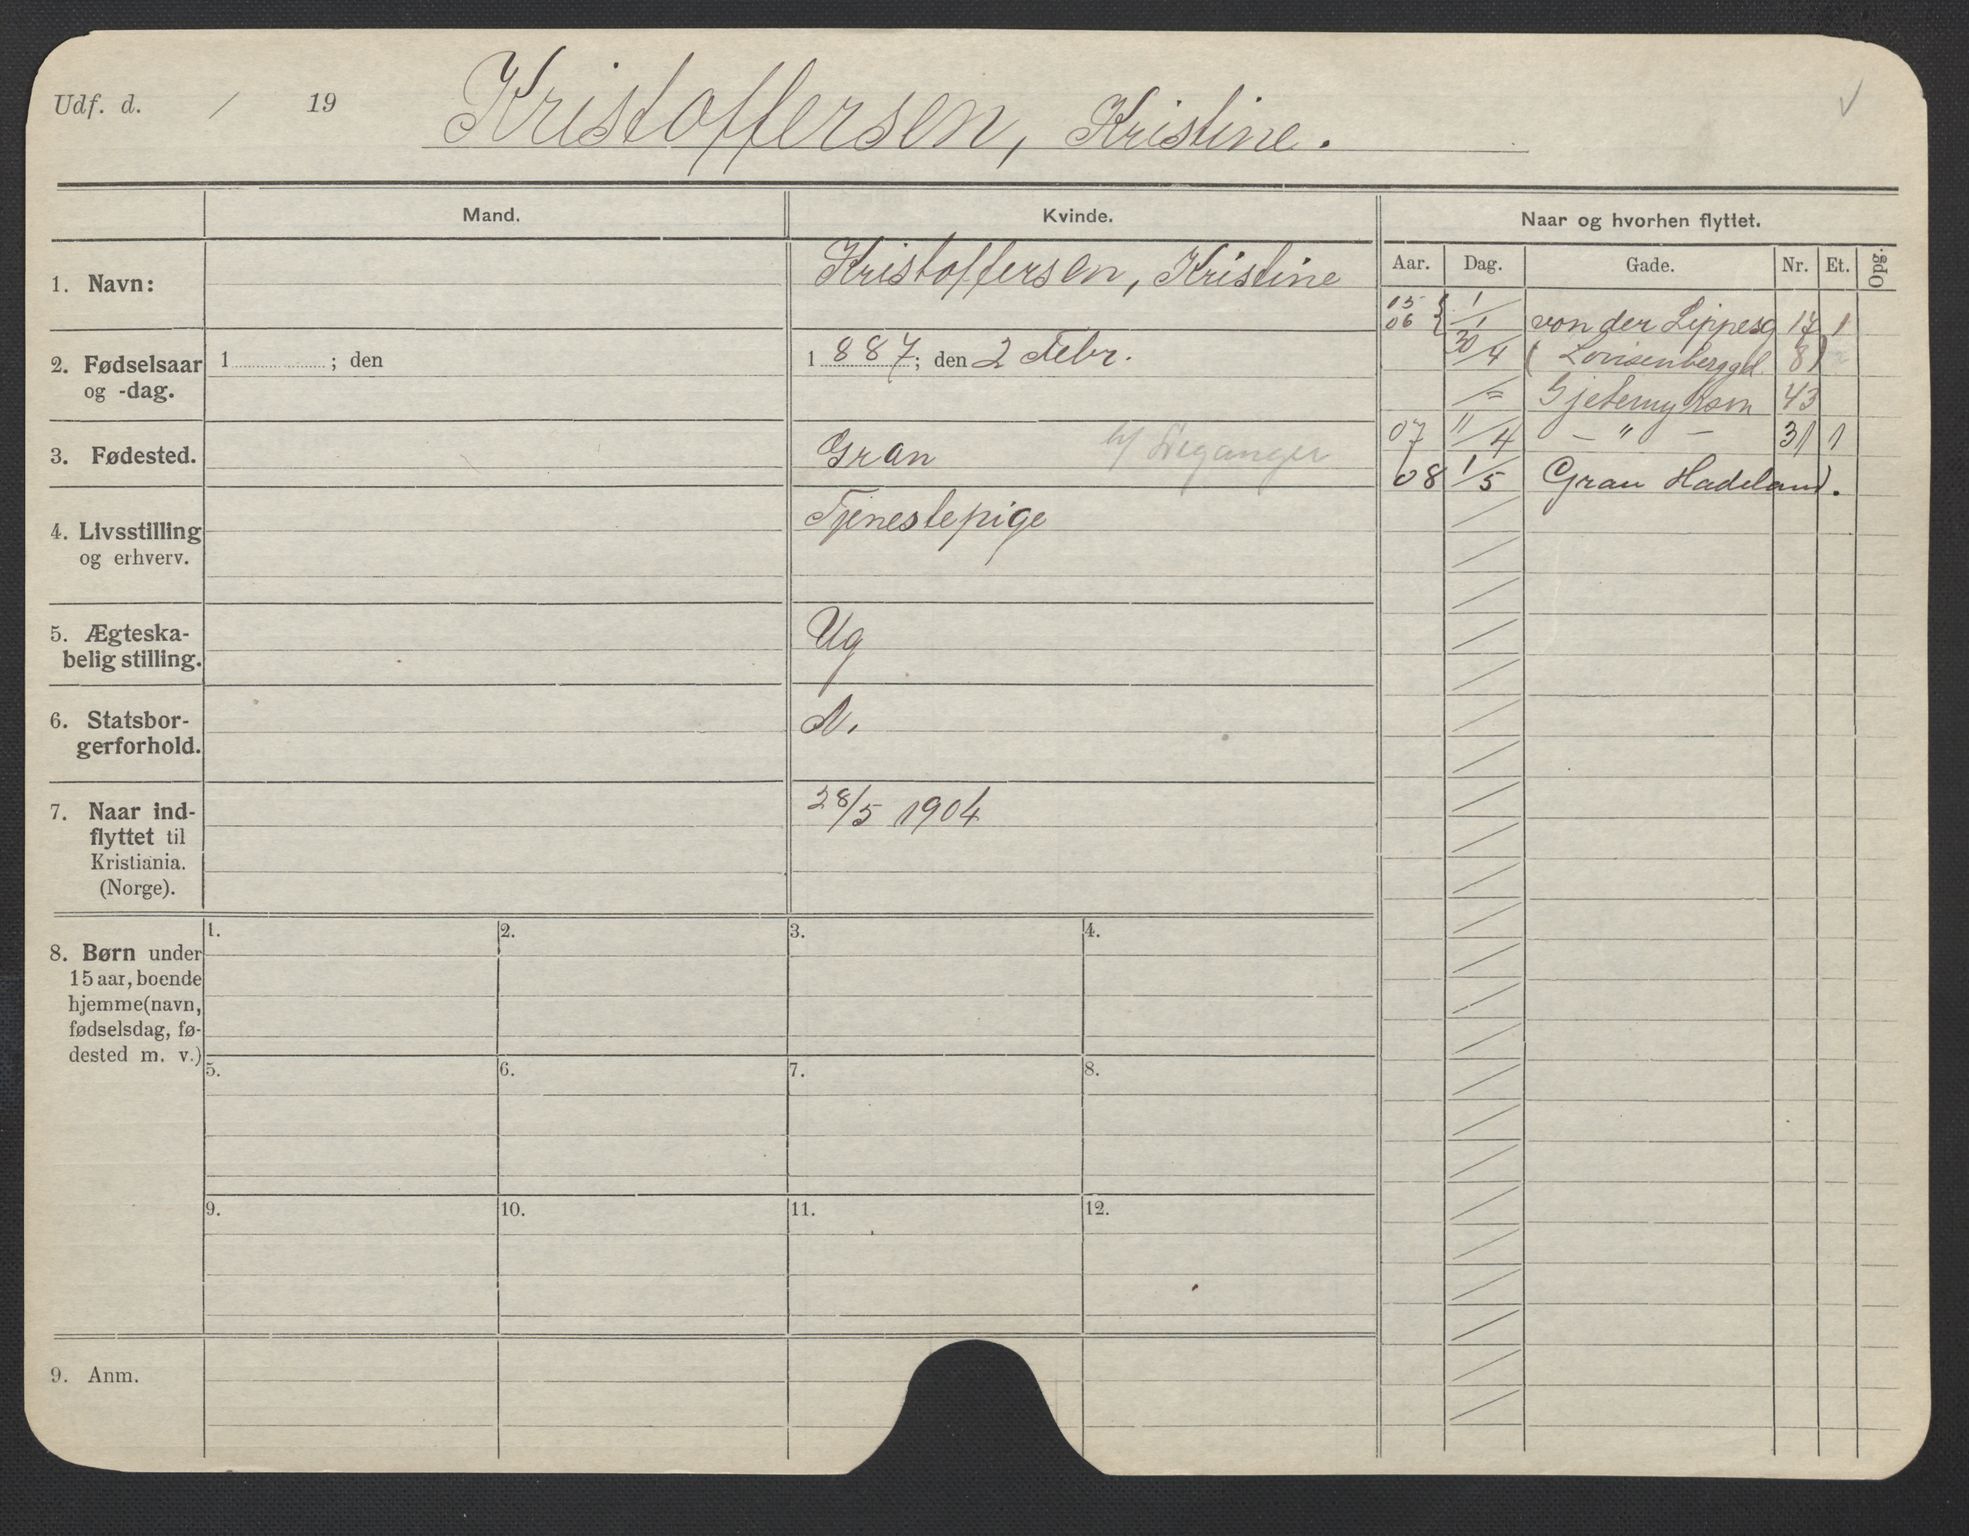 Udf. d. / 19
Kristoffersen, Kristine.
Mand.
Kvinde.
Naar og hvorhen flyttet.
Aar. Dag. Gade. Nr. Et. Opg.
1. Navn:
Kristoffersen, Kristine
2. Fødselsaar
og -dag.
1 ; den
1 887; den 2 Febr.
3. Fødested.
Gran
4. Livsstilling
og erhverv.
Tjenestepige
5. Ægteska-
belig stilling.
Ug
6. Statsbor-
gerforhold.
N.
7. Naar ind-
flyttet til
Kristiania.
(Norge).
28/5 1904
8. Børn under
15 aar, boende
hjemme (navn,
fødselsdag, fø-
dested m. v.)
1. 2. 3. 4.
5. 6. 7. 8.
9. 10. 11. 12.
9. Anm.
05
06 { 1/1 von der Lippesg 17 1
30/4 ( Lovisenberggd. 8 )
/= Gjetemyrsvn 43
07 11/4 – " – 31 1
08 1/5 Gran Hadeland.